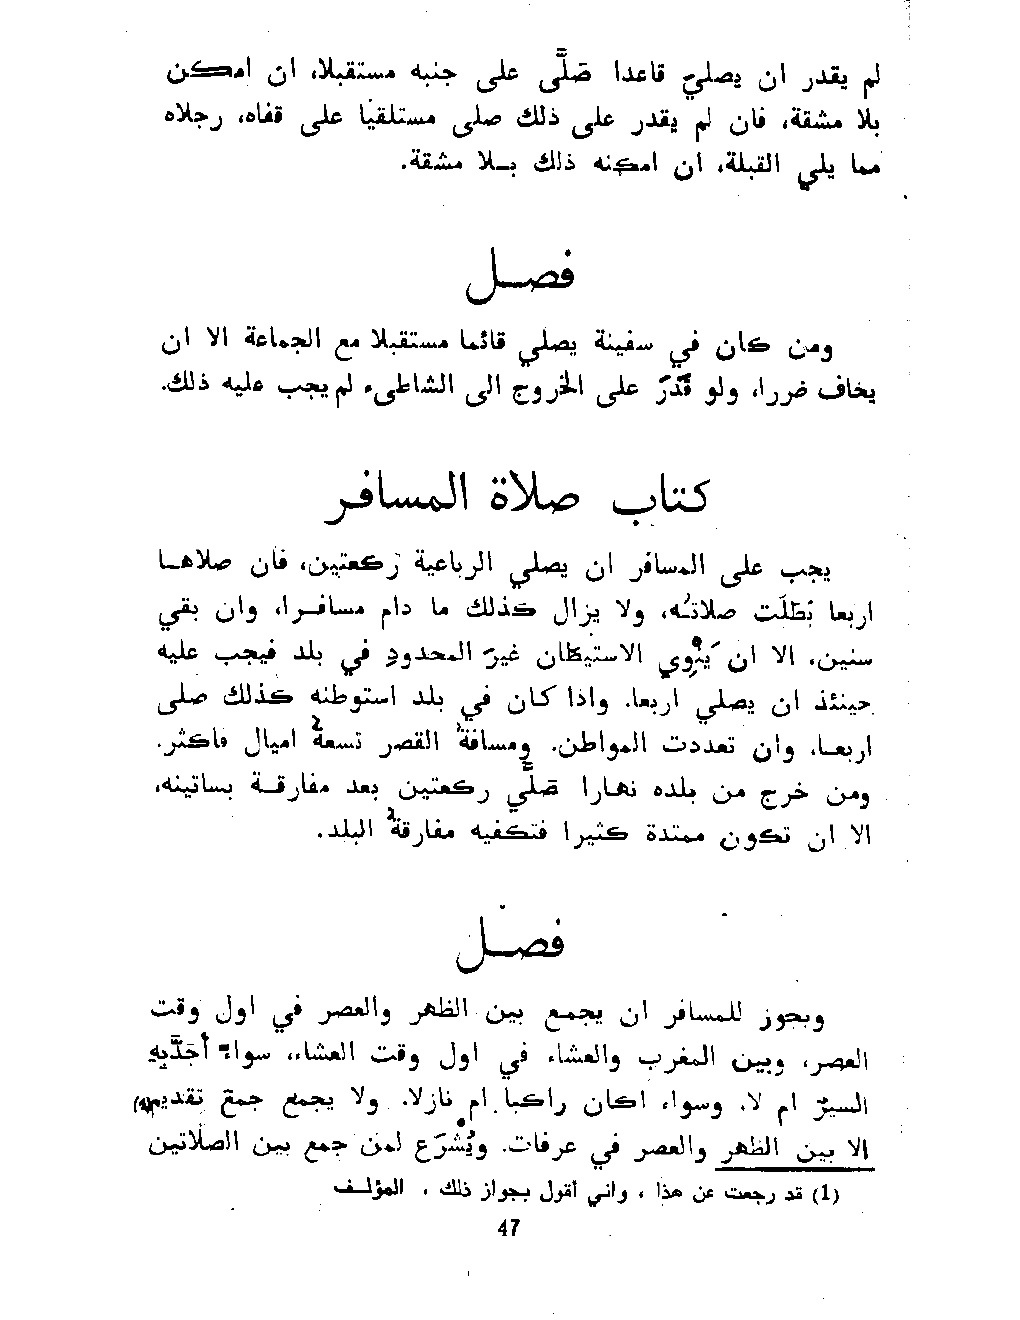 لم يقدر ان يصلي قاعدا صَلَّى على جنبه مستقبلا، ان امكن
بلا مشقة، فان لم يقدر على ذلك صلى مستلقيا على قفاه، رجلاه
مما يلي القبلة، ان امكنه ذلك بـلا مشقة.
فصـل
ومن كان في سفينة يصلي قائما مستقبلا مع الجماعة الا ان
يخاف ضررا، ولو قَدَرَ على الخروج الى الشاطىء لم يجب عليه ذلك.
كتاب صلاة المسافر
يجب على المسافر ان يصلي الرباعية ركعتين، فان صلاهـا
اربعا بَطَلَت صلاتُه، ولا يزال كذلك ما دام مسافـرا، وان بقي
سنين، الا ان يَنْوِي الاستيطان غيرَ المحدودِ في بلد فيجب عليه
حينئذ ان يصلي اربعا. واذا كان في بلد استوطنه كذلك صلى
اربعـا، وان تعددت المواطن. ومسافةُ القصر تسعةُ اميال فاكثر.
ومن خرج من بلده نهارا صَلَّى ركعتين بعد مفارقـة بساتينه،
الا ان تكون ممتدة كثيرا فتكفيه مفارقةُ البلد.
فصـل
ويجوز للمسافر ان يجمع بين الظهر والعصر في اول وقت
العصر، وبين المغرب والعشاء في اول وقت العشاء، سواءٌ أَجَدَّ به
السيرُ ام لا. وسواء اكان راكبا ام نازلا. ولا يجمع جمعَ تقديم(1)
الا بين الظهر والعصر في عرفات. ويُشْرَع لمن جمع بين الصلاتين
(1) قد رجعت عن هذا ، واني أقول بجواز ذلك ، المؤلـف
47